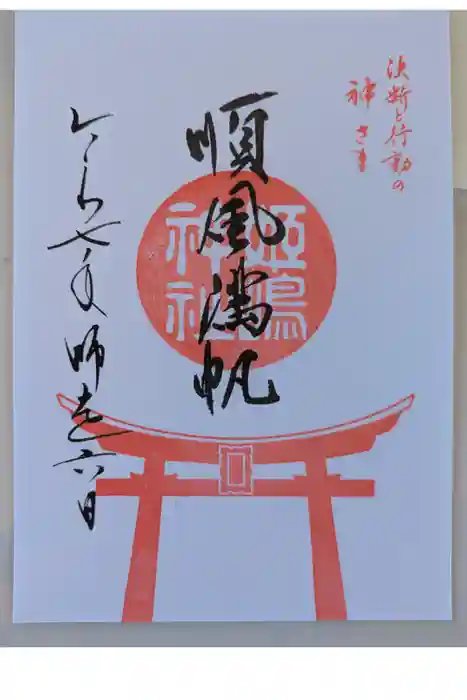 決断と行動の
神さま
順風満帆
神社
令和七年師走六日